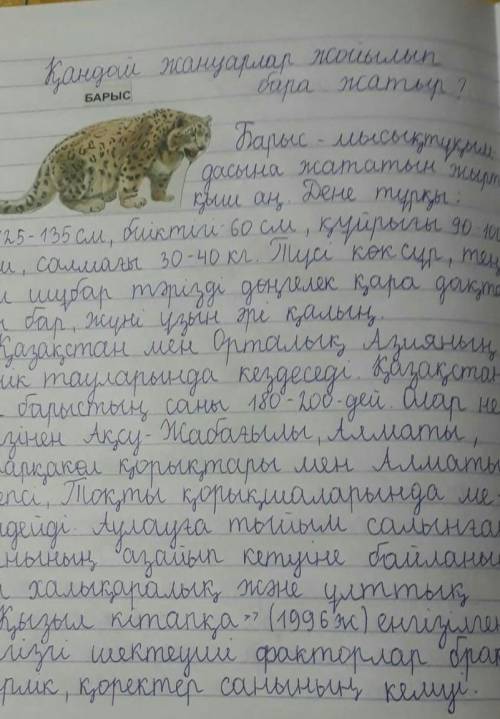 Қандай жануарлар жойылып
бара жатыр?
БАРЫС
Барыс - мысықтұқым-
дасына жататын жырт-
қыш аң. Дене тұрқы:
125-135 см, биіктігі 60 см, құйрығы 90
салмағы 30-40 кг. Түсі көк сұр,
шұбар тәрізді дөңгелек қара
бар, жүні ұзын әрі қалың.
Қазақстан мен Орталық Азияның
тауларында кездеседі. Қазақстан
барыстың саны 180-200-дей. Олар
Ақсу-Жабағылы, Алматы,
қорықтары мен Алматы
Тоқты қорықшаларында
Аулауға тыйым салынған
азайып кетуіне
халықаралық және ұлттық
Қызыл кітапқа" (1996 ж)
шектеуші факторлар
қоректер санының кемуі.